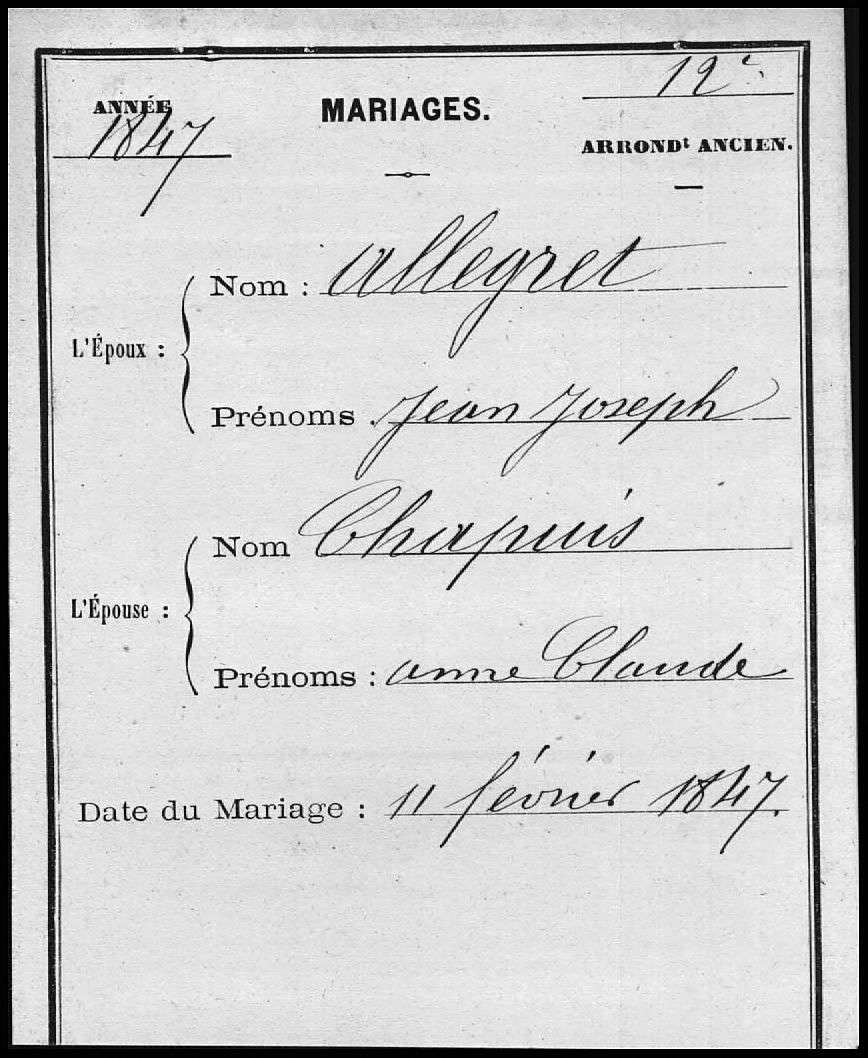 ANNÉE
1847
MARIAGES.
12e
ARRONDt ANCIEN.
L'Époux :
Nom : Allegret
Prénoms : Jean Joseph
L'Épouse :
Nom Chapuis
Prénoms : Anne Claude
Date du Mariage : 11 février 1847.